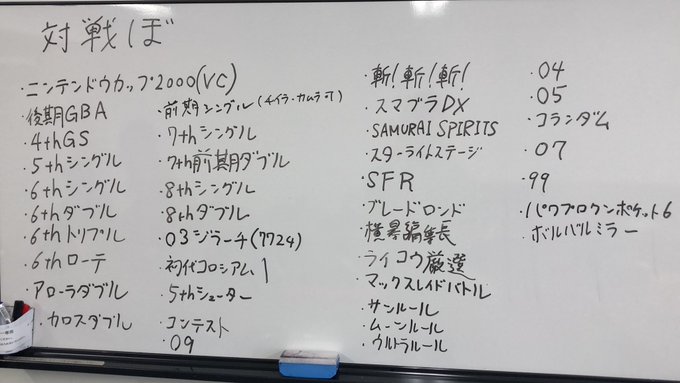 対戦ぼ
・ニンテンドウカップ2000(VC)
・後期GBA
・4thGS
・5thシングル
・6thシングル
・6thダブル
・6thトリプル
・6thローテ
・アローラダブル
・カロスダブル
・前期シングル(チイラ・カムラ可)
・7thシングル
・7th前期ダブル
・8thシングル
・8thダブル
・03ジラーチ(7724)
・初代コロシアム1
・5thシューター
・コンテスト
・09
・斬!斬!斬!
・スマブラDX
・SAMURAI SPIRITS
・スターライトステージ
・SFR
・ブレードロンド
・横暴編集長
・ライコウ厳選
・マックスレイドバトル
・サンルール
・ムーンルール
・ウルトラルール
・04
・05
・コランダム
・07
・99
・パワプロクンポケット6
・ボルバルミラー